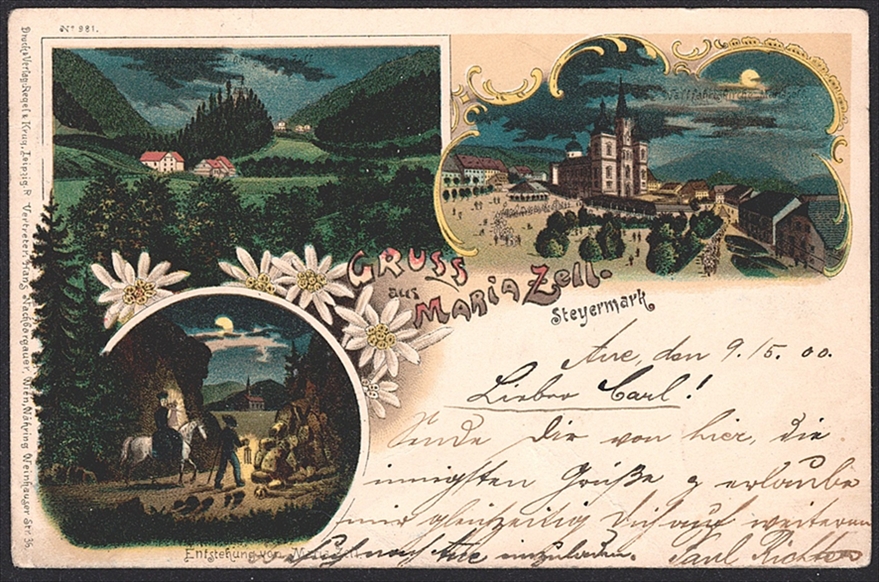 No 981.
Druck & Verlag Regel & Krug, Leipzig-R. Vertreter: Hans Nachbargauer, Wien, Währing Weinhauser Str. 35.
GRUSS
aus MARIA Zell.
Steyermark
Aue, den 9./5. 00.
Lieber Carl!
Sende Dir von hier, die
innigsten Grüße & erlaube
mir gleichzeitig Dich auf weiteren
nach Aue einzuladen. Paul Richter
Entstehung von Maria Zell.